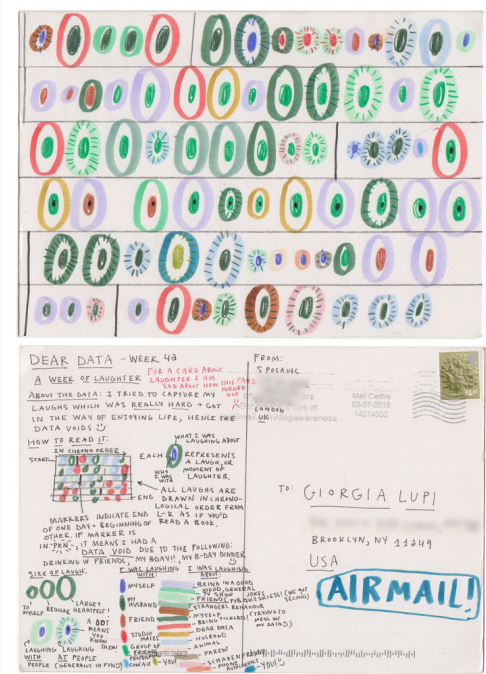 DEAR DATA - WEEK 42
A WEEK OF LAUGHTER
FOR A CARD ABOUT
LAUGHTER I AM
SAD ABOUT HOW THIS CARD
TURNED
OUT
ABOUT THE DATA: I TRIED TO CAPTURE MY
LAUGHS WHICH WAS REALLY HARD + GOT
IN THE WAY OF ENJOYING LIFE, HENCE THE
DATA VOIDS
HOW TO READ IT:
IN CHRONO ORDER
START
END
WHAT I WAS
LAUGHING ABOUT
EACH
REPRESENTS
A LAUGH, OR
MOMENT OF
LAUGHTER.
WHO
I WAS
WITH
ALL LAUGHS ARE
DRAWN IN CHRONO-
LOGICAL ORDER FROM
L-R AS IF YOU'D
READ A BOOK.
MARKERS INDICATE END
OF ONE DAY + BEGINNING OF
OTHER. IF MARKER IS
IN "PEN", IT MEANS I HAD A
DATA VOID DUE TO THE FOLLOWING:
DRINKING W FRIENDS, MY BDAY!!, MY B-DAY DINNER
SIZE OF LAUGH:
TO MYSELF
REGULAR
LARGE +
HEARTFELT!
LAUGHING
WITH
PEOPLE
LAUGHING
AT PEOPLE
(GENERALLY IN FUN)
A DOT
MEANS
YOU
KNOW
THEM
I WAS LAUGHING
WITH:
MYSELF
MY
HUSBAND
FRIEND
STUDIO
MATES
GROUP OF
FRIENDS
I WAS LAUGHING
ABOUT:
BEING IN A GOOD
MOOD, GENERAL
TV SHOW JOKES
FRIENDS
STRANGERS BEHAVIOUR
MYSELF
BEING TICKLED!
(TRYING TO
MESS W/
MY DATA)
DEAR DATA
HUSBAND
ANIMAL
PARENT
SCHADENFREUDE
PHONE
AUTOCORRECT
YOU!
FROM:
S POSAVEC
LONDON
UK
Mail Centre
03-07-2015
14014002
TO: GIORGIA LUPI
BROOKLYN, NY 11249
USA
AIRMAIL!